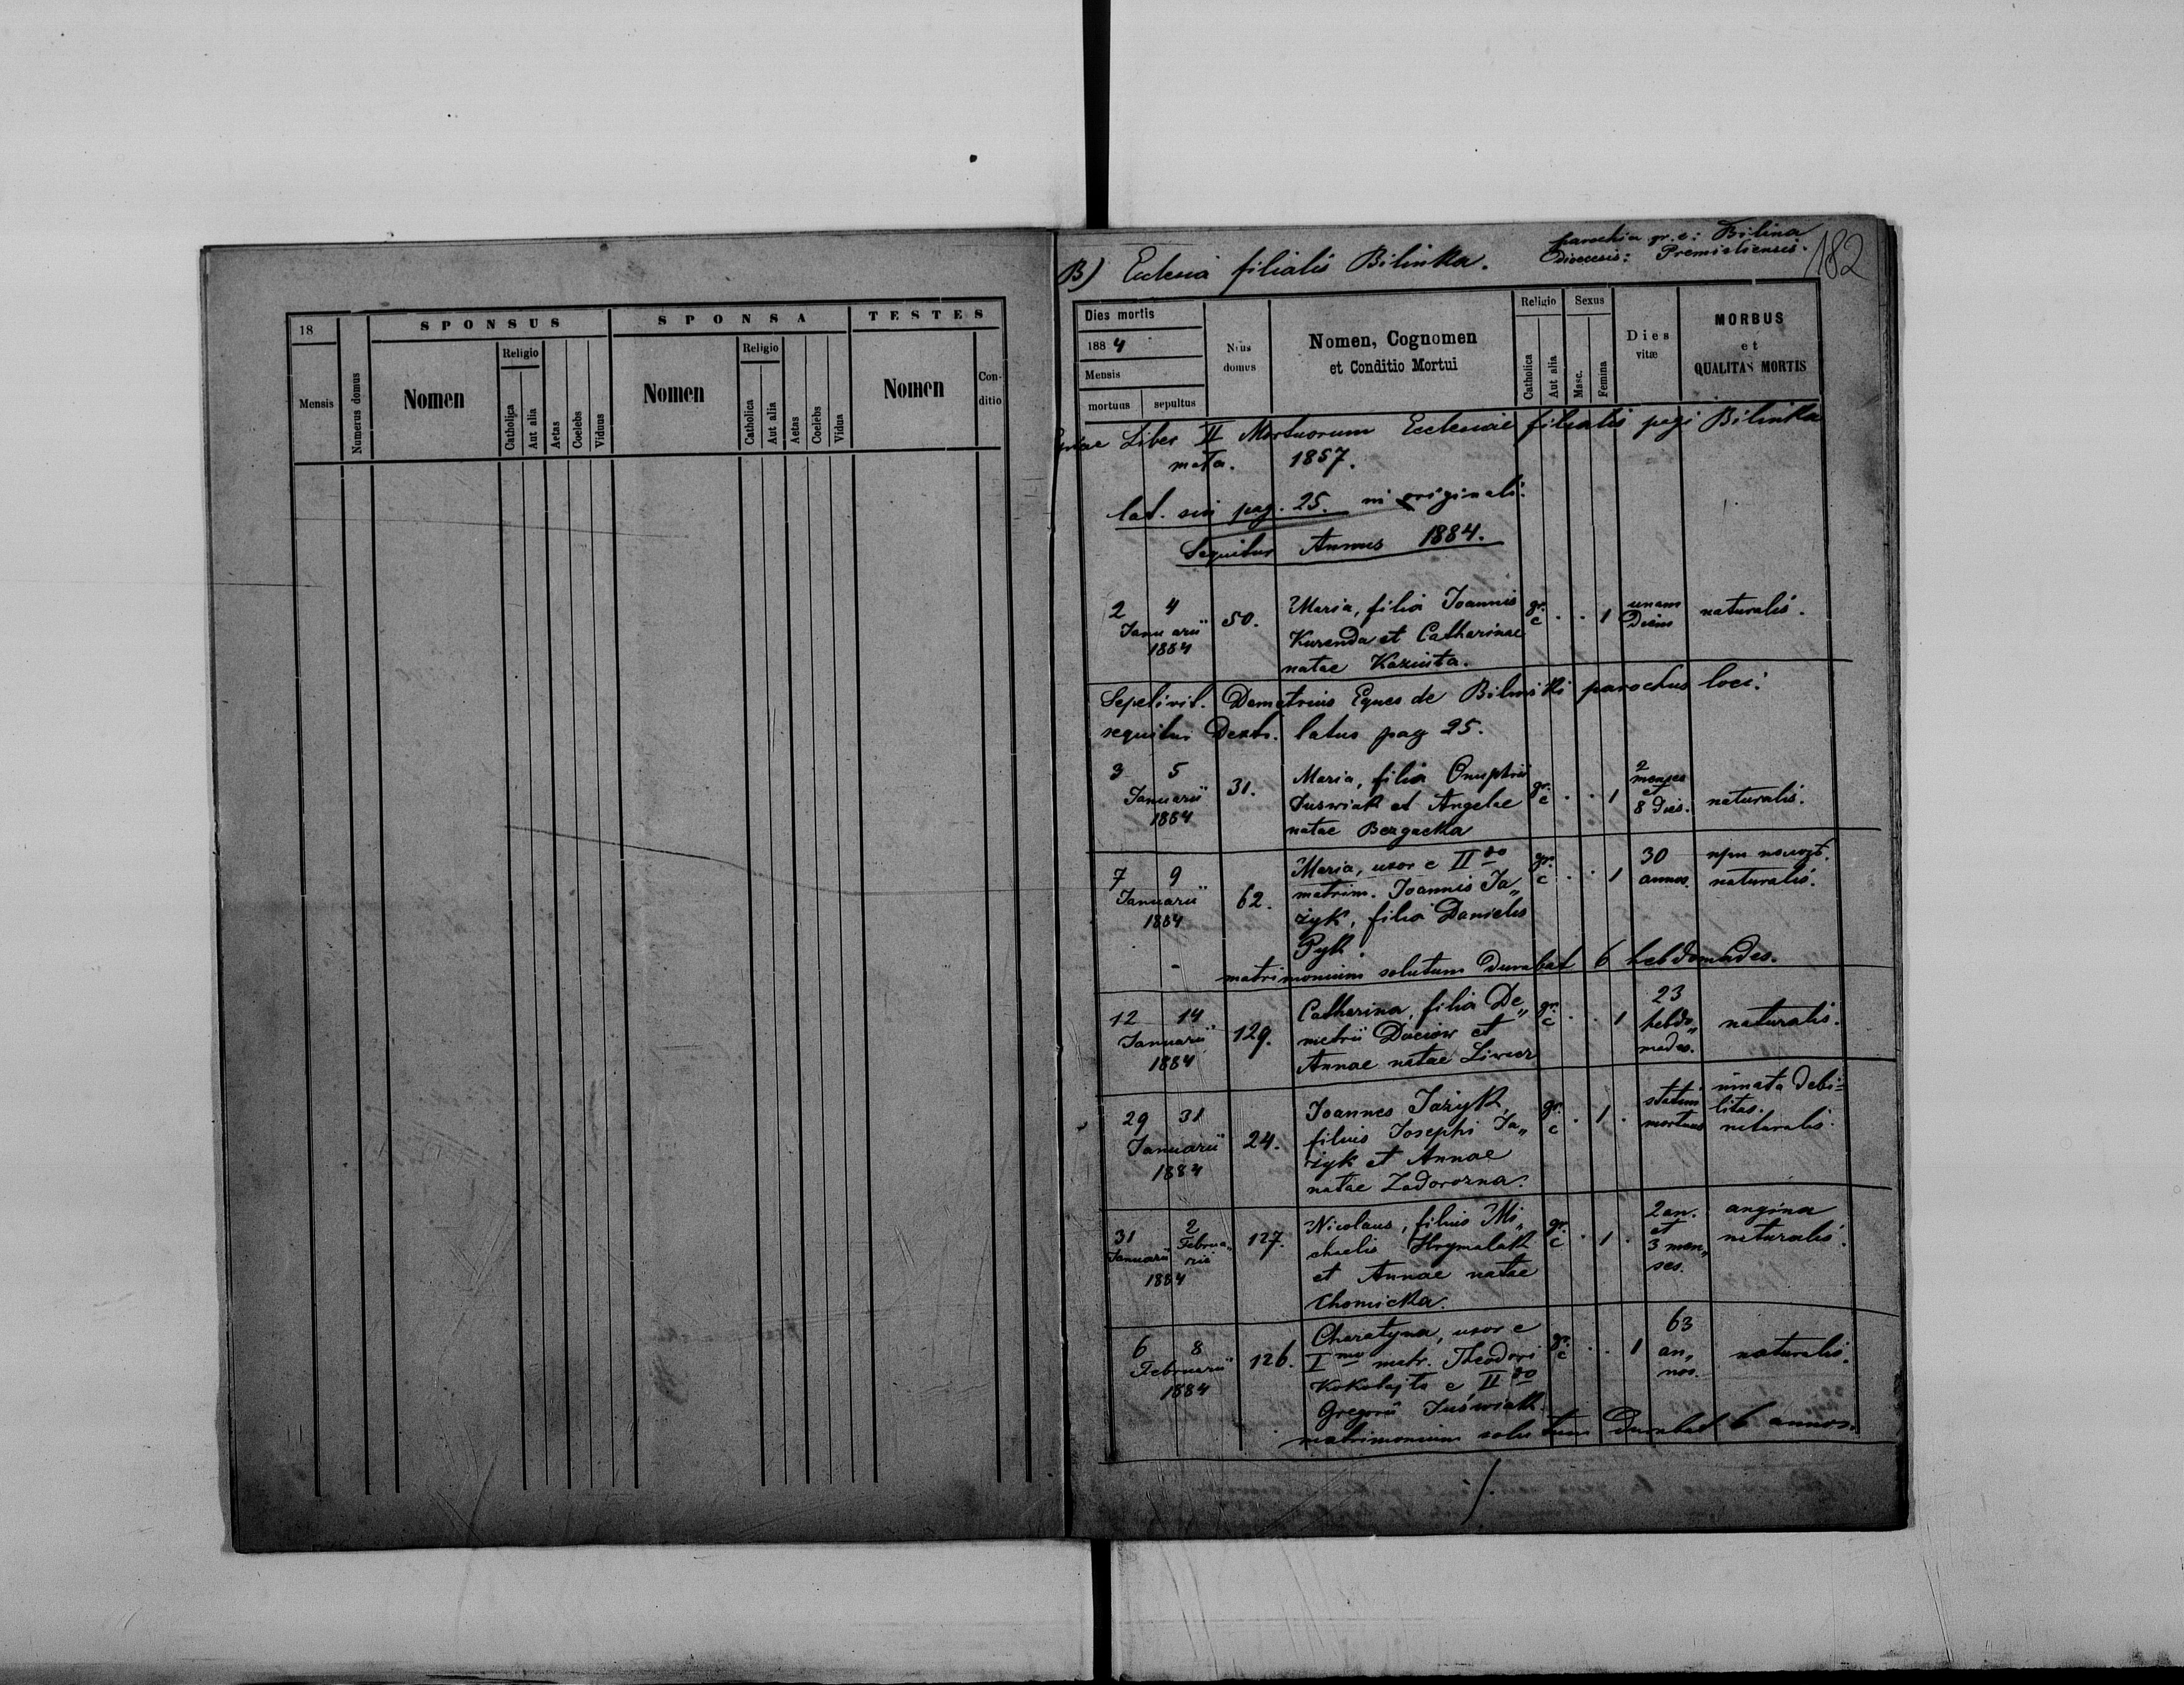 18
Mensis
Numerus domus
SPONSUS
Nomen
Religio
Catholica
Aut alia
Aetas
Coelebs
Viduus
SPONSA
Nomen
Religio
Catholica
Aut alia
Aetas
Coelebs
Vidua
TESTES
Nomen
Conditio
B) Ecclesia filialis Bilinka.
parochia gr. c: Bilina
Dioecesis: Premisliensis.
182
Dies mortis
1884
Mensis
mortuus
sepultus
Nrus domus
Nomen, Cognomen
et Conditio Mortui
Religio
Catholica
Aut alia
Sexus
Masc.
Femina
Dies
vitæ
MORBUS
et
QUALITAS MORTIS
Liber II Mortuorum Ecclesiae filialis pagi Bilinka
1857.
lat. sin pag. 25. in originali.
Sequitur Annus 1884.
2 4
Januarii
1884
50.
Maria, filia Joannis
Kurenda et Catharinae
natae Kaziuta.
gr. c
. . 1
unam
Diem
naturalis.
Sepelivit. Demetrius Eques de Bilinski parochus loci.
sequitur Dextr. latus pag 25.
3 5
Januarii
1884
31.
Maria, filia Onuphrii
Juswiak et Angelae
natae Bezgacka
gr. c
. . 1
2
menses
et
8 dies.
naturalis.
7 9
Januarii
1884
62.
Maria, uxor e II do
matrim. Joannis Ja„
żyk, filia Danielis
Pyk.
gr. c
. . 1
30
annos.
naturalis.
matrimonium solutum durabat 6 hebdomades.
12 14
Januarii
1884
129.
Catharina, filia De„
metrii Daciow et
Annae natae Liwcz
gr. c
. . 1
23
hebdo„
mades.
naturalis.
29 31
Januarii
1884
24.
Joannes Jażyk,
filius Josephi Ja„
żyk et Annae
natae Zadorozna.
gr. c
. 1 .
statim
mortuus
innata debi=
litas.
naturalis.
31
Januarii
2
Februa„
rii
1884
127.
Nicolaus, filius Mi„
chaelis Hrymalak
et Annae natae
Chomicka.
gr. c
. 1 .
2 an.
et
3 men„
ses.
angina
naturalis.
6 8
Februarii
1884
126.
Charatyna, uxor e
I mo matr. Theodori
Kokolajto e II do
Gregorii Juświak.
gr. c
. . 1
63
an„
nos.
naturalis.
matrimonium solutum durabat 6 annos.